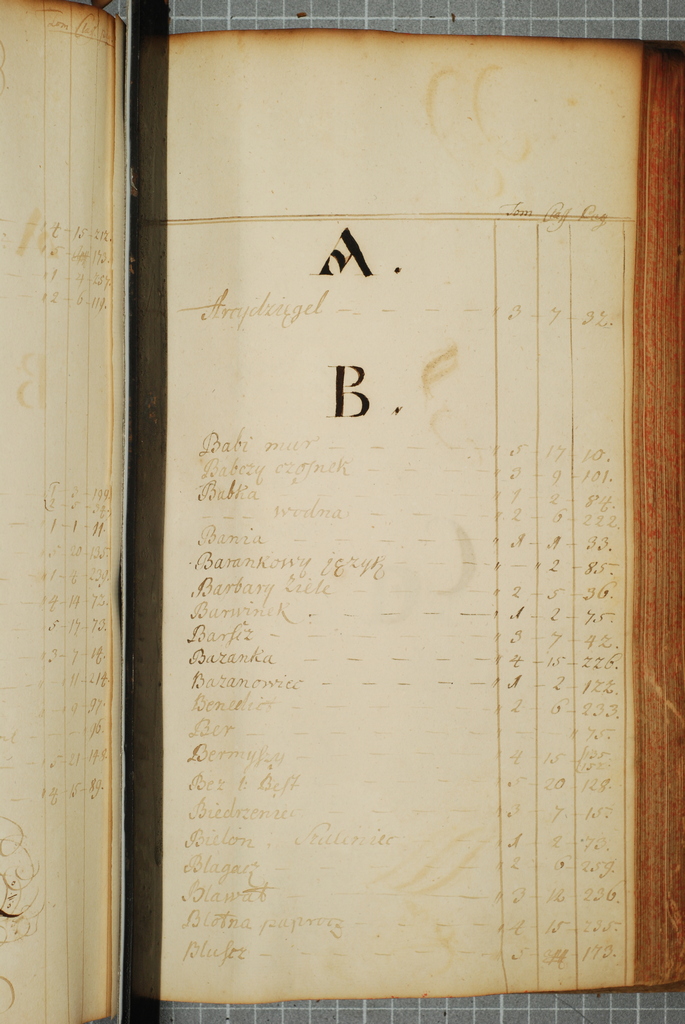 Tom Pag
4 - 15 - 212.
5 - 173.
1 - 4 - 257.
2 - 6 - 119.
1 - 1 - 11.
5 - 20 - 135.
1 - 4 - 239.
4 - 14 - 73.
5 - 17 - 73.
3 - 7 - 14.
11 - 214.
9 - 97.
16.
5 - 21 - 148.
4 - 15 - 89.
Tom Pag
A.
Arcydzięgel - - - - " 3 - 7 - 32.
B.
Babi mur - - - - " 5 - 17 - 10.
Babczy czosnek - - - " 3 - 9 - 101.
Babka - - - - " 1 - 2 - 84.
- - - wodna - - - " 2 - 6 - 222.
Bania - - - - " 1 - 1 - 33.
Barankowy język - - - " - " 2 - 85.
Barbary Ziele - - - " 2 - 5 - 36.
Barwinek - - - - " 1 - 2 - 75.
Barszcz - - - - " 3 - 7 - 42.
Bazanka - - - - " 4 - 15 - 226.
Bazanowiec - - - - " 1 - 2 - 122.
Benedict - - - - " 2 - 6 - 233.
Ber - - - - " 75.
Bermyszy - - - - 4 - 15 - 135.
Bez - - - - " 5 - 20 - 128.
Biedrzeniec - - - " 3 - 7 - 15.
Bielon - " 1 - 2 - 73.
Blagacz - - - - " 2 - 6 - 259.
Blawat - - - - " 3 - 12 - 236.
Błotna paprocz - - - " 4 - 15 - 235.
Bluszcz - - - - " 5 - 173.